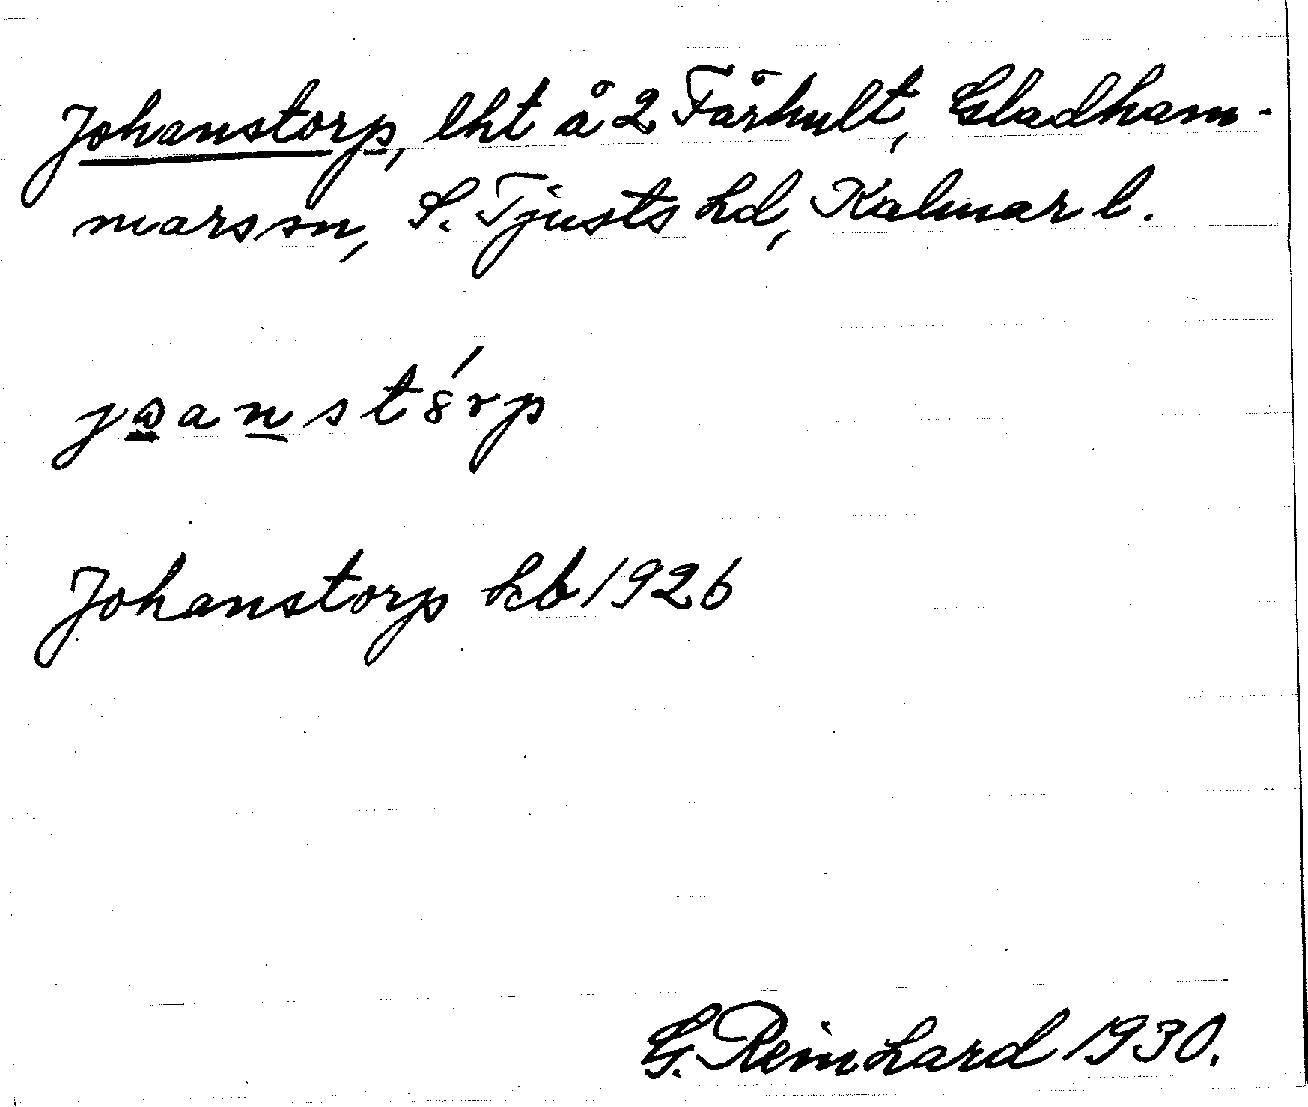 Johanstorp, lht å 2 Fårhult, Gladham-
marssn, S. Tjusts hd, Kalmar l.
Johanstorp kb 1926
G. Reinhard 1930.